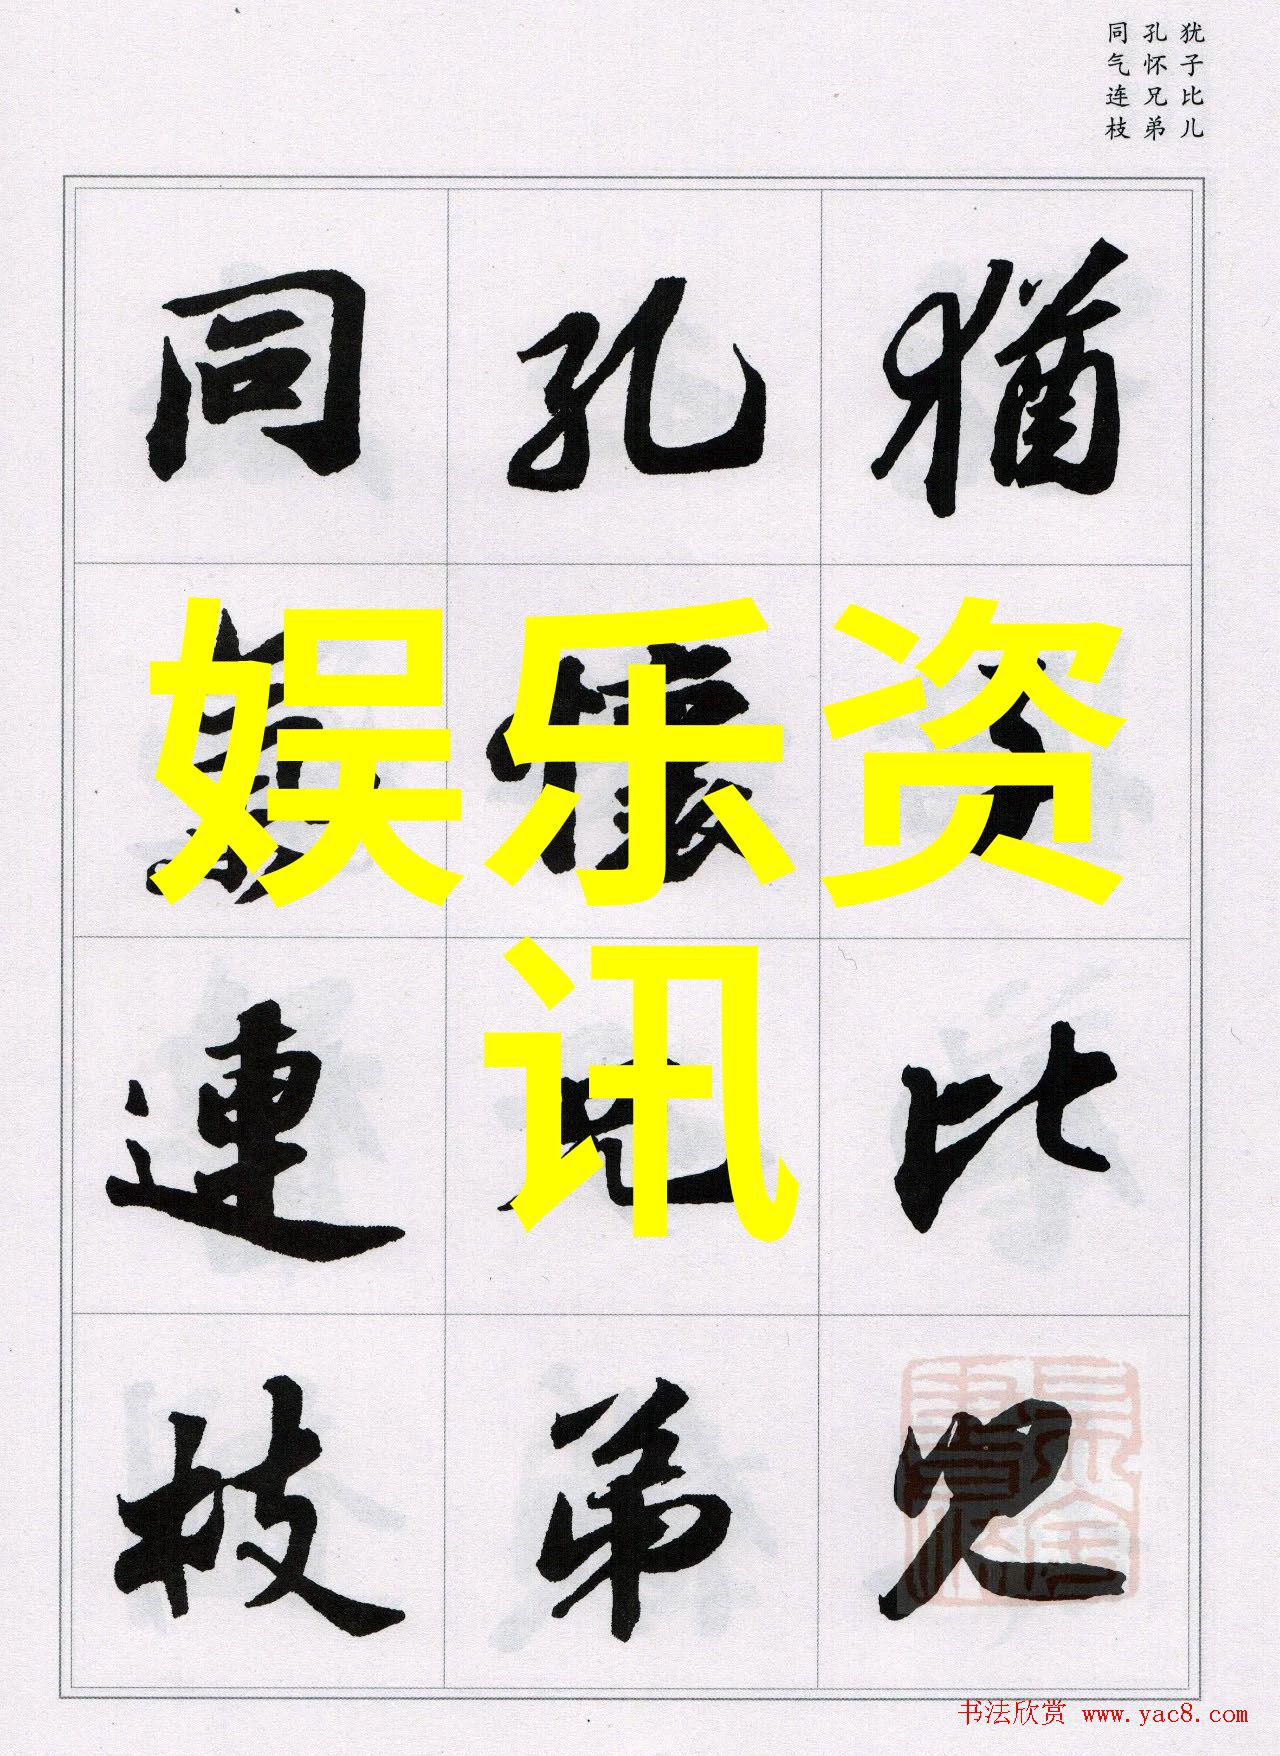 犹子比儿
孔怀兄弟
同气连枝
猶子比兒
孔懷兄弟
同氣連枝
娱乐资
讯
书法欣赏 www.yac8.com